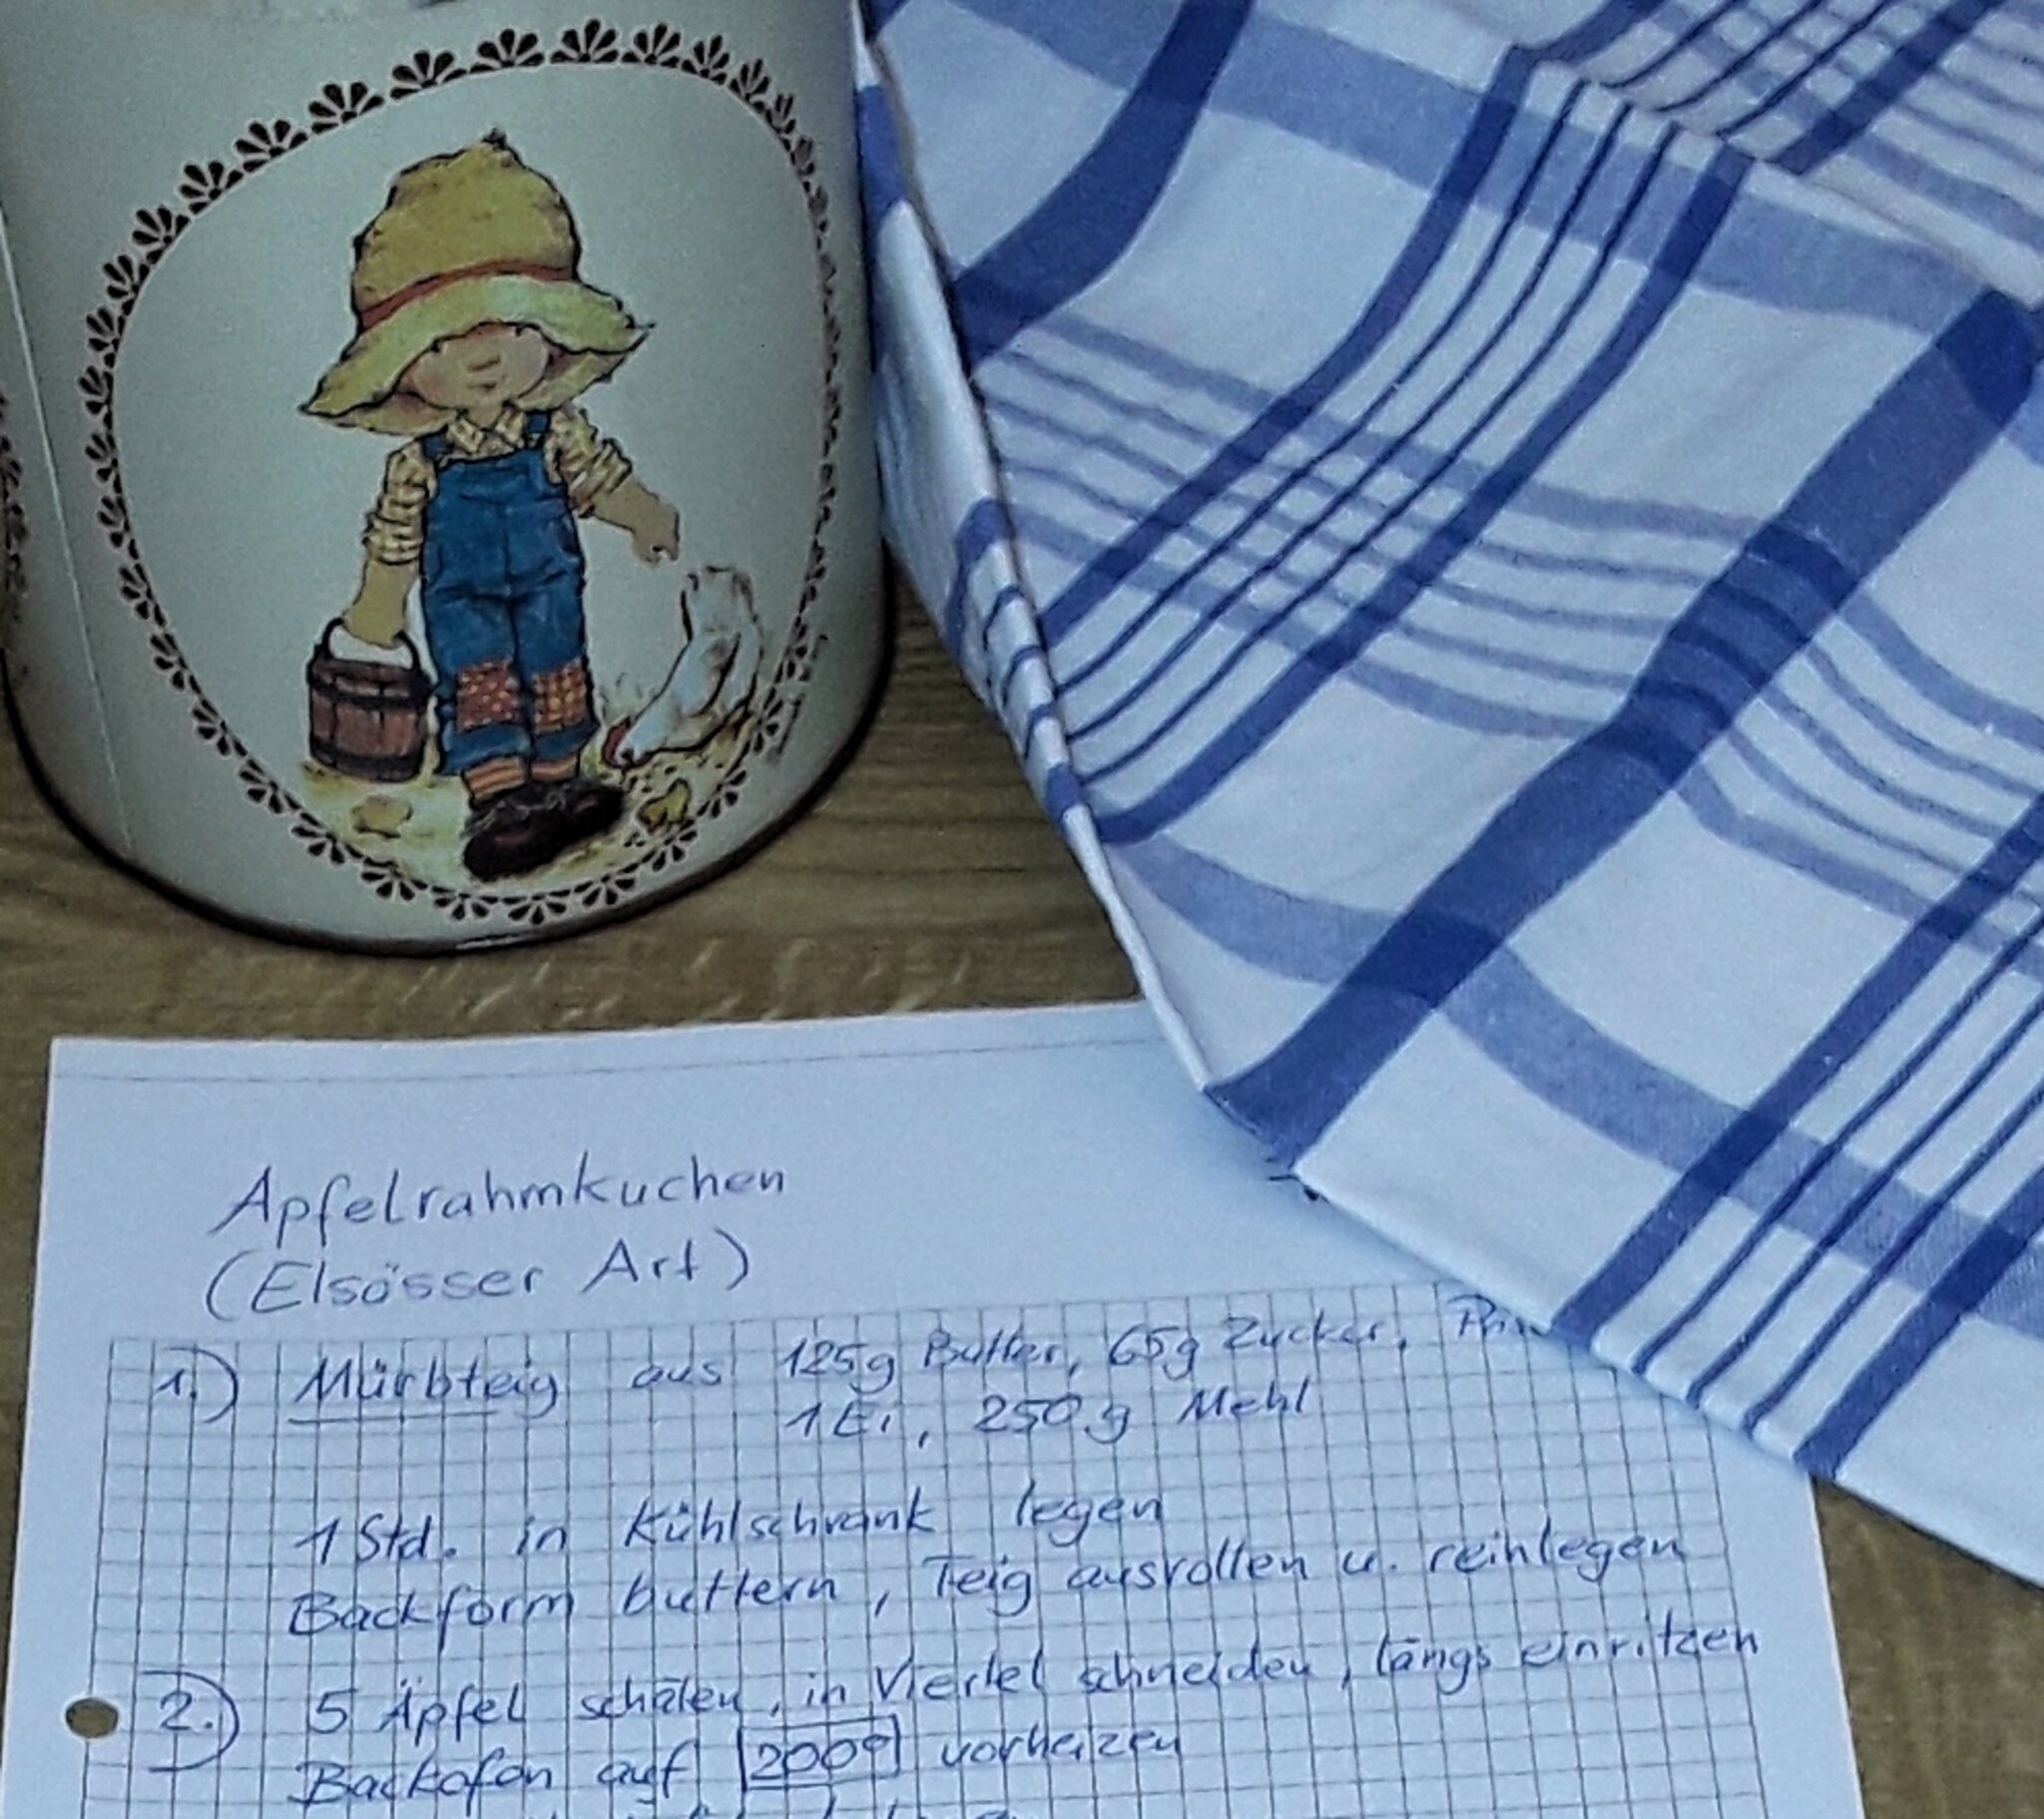 Apfelrahmkuchen
(Elsässer Art)
1.) Mürbteig aus 125g Butter, 65g Zucker,
1 Ei, 250g Mehl
1 Std. in Kühlschrank legen
Backform buttern, Teig ausrollen u. reinlegen
2.) 5 Äpfel schälen, in Viertel schneiden, längs einritzen
Backofen auf 200° vorheizen